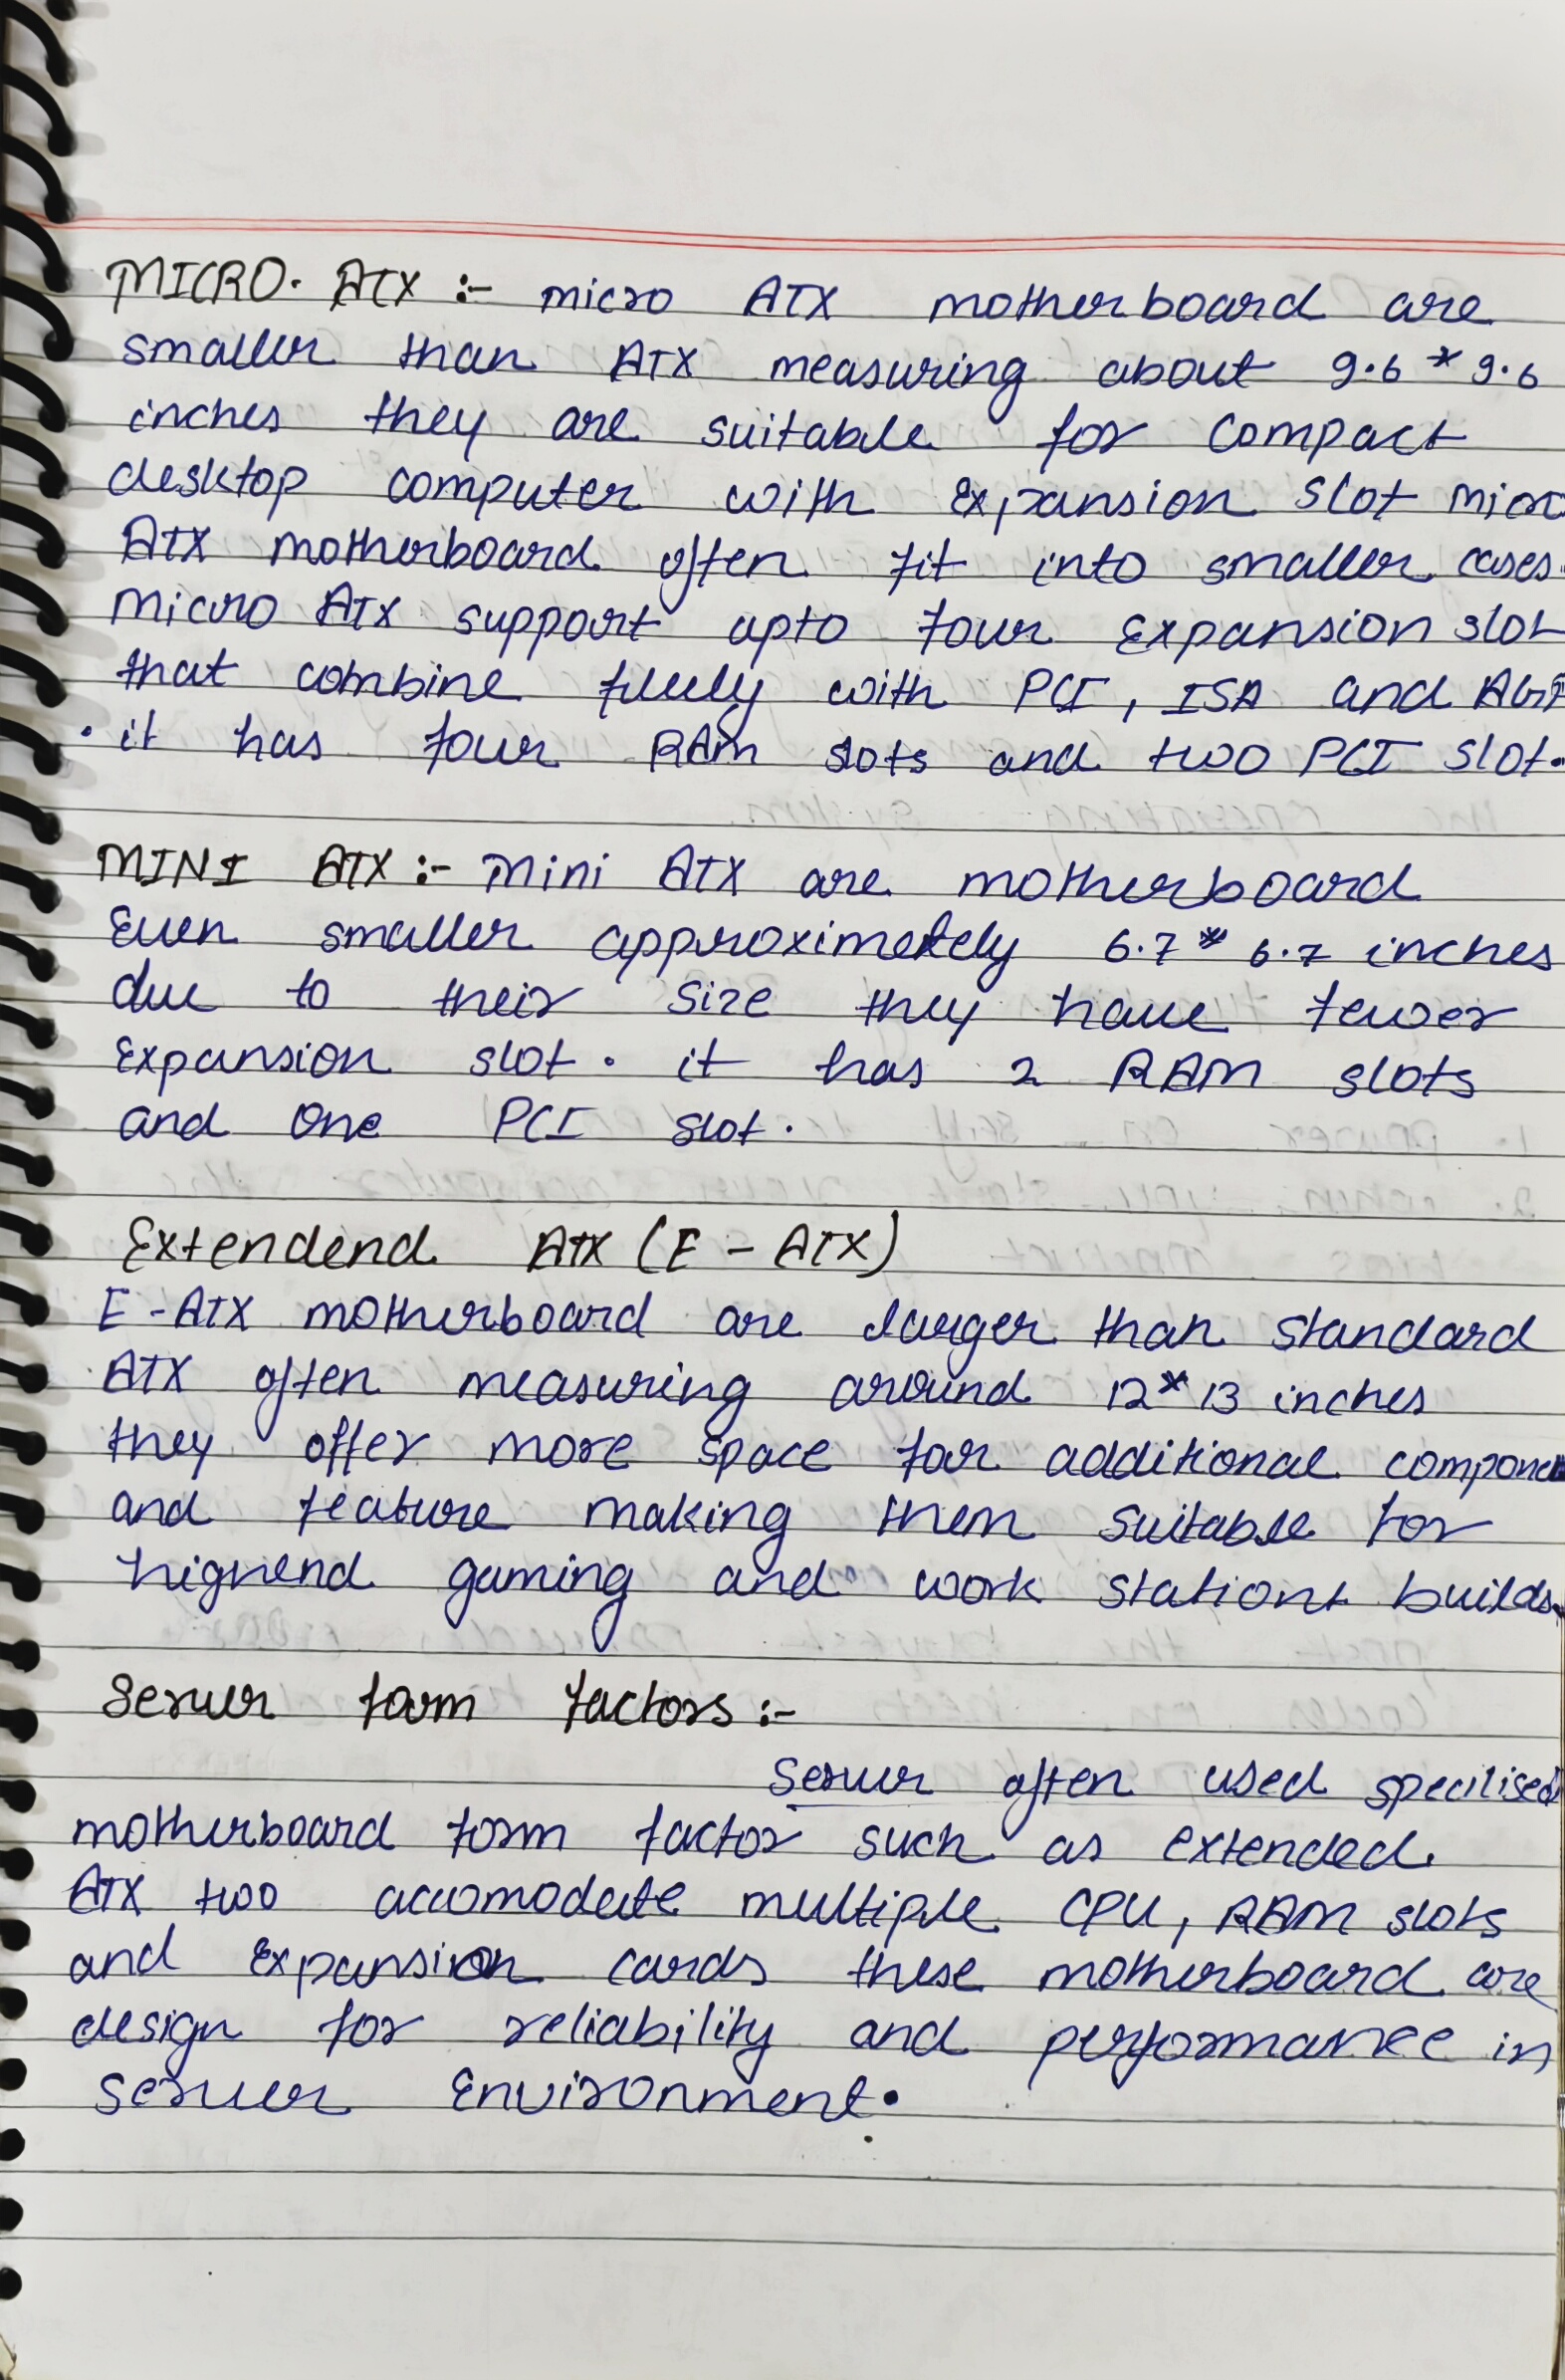 MICRO. ATX :- micro ATX motherboard are
smaller than ATX measuring about 9.6 * 9.6
inches they are suitable for compact
desktop computer with Expansion slot micro
ATX motherboard often fit into smaller cases.
Micro ATX support upto four Expansion slot
that combine freely with PCI, ISA and AGP
. it has four RAM slots and two PCI slot.
MINI ATX :- Mini ATX are motherboard
Even smaller approximetely 6.7 * 6.7 inches
due to their size they have fewer
Expansion slot. it has 2 RAM slots
and one PCI slot.
Extendend ATX (E - ATX)
E-ATX motherboard are larger than standard
ATX often measuring around 12 * 13 inches
they offer more space for additional
and feature making them suitable for
highend gaming and work stations builds.
Server form factors :-
Server often used specilised
motherboard form factor such as extended
ATX two accomodate multiple CPU, RAM slots
and Expansion cards these motherboard are
design for reliability and performance in
server Environment.